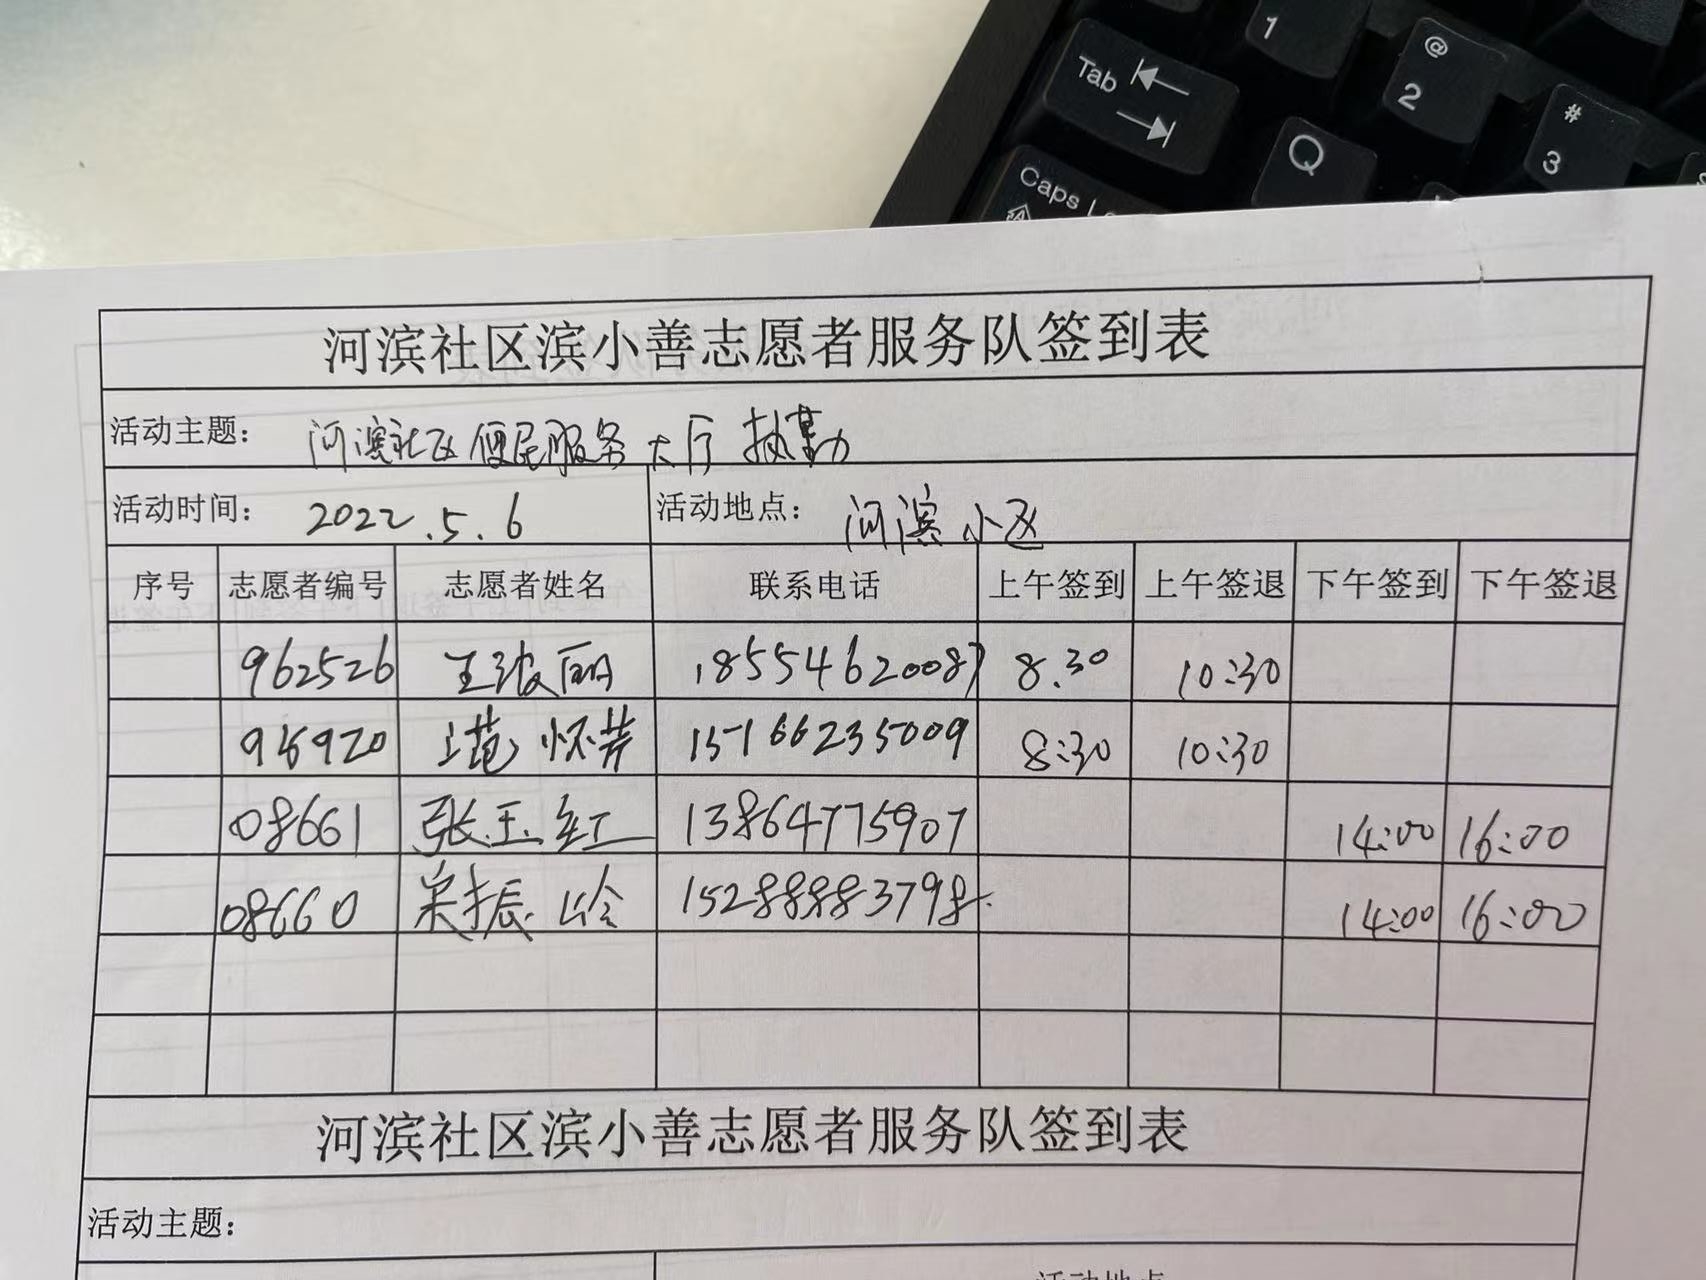 1
@
2
#
3
Tab
Q
Caps
河滨社区滨小善志愿者服务队签到表
活动主题： 河滨社区便民服务大厅 执勤
活动时间： 2022.5.6 活动地点： 河滨小区
序号 志愿者编号 志愿者姓名 联系电话 上午签到 上午签退 下午签到 下午签退
962526 王波丽 18554620087 8.30 10:30
怀芹 15166235009 8:30 10:30
08661 张玉红 13864775907 14:00 16:00
08660 振 15288883798. 14:00 16:00
河滨社区滨小善志愿者服务队签到表
活动主题：
活动地点